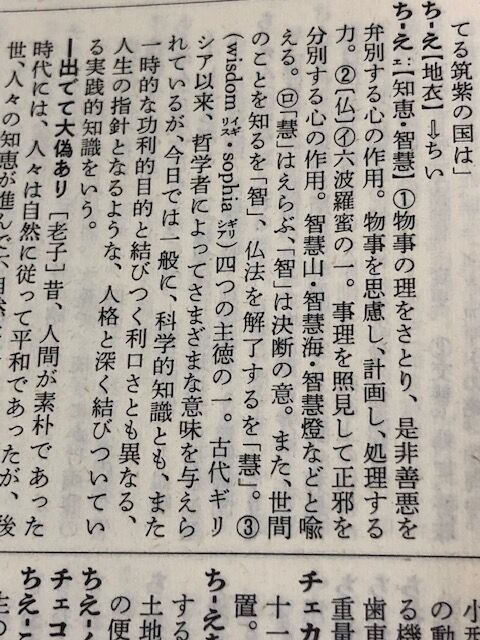 てる筑紫の国は」
ち‐え【地衣】⇩ちい
ち‐えヱ【知恵・智慧】①物事の理をさとり、是非善悪を
弁別する心の作用。物事を思慮し、計画し、処理する
力。②〔仏〕㋑六波羅蜜の一。事理を照見して正邪を
分別する心の作用。智慧山・智慧海・智慧燈などと喩
える。㋺「慧」はえらぶ、「智」は決断の意。また、世間
のことを知るを「智」、仏法を解了するを「慧」。③
(wisdomイギリス・sophiaギリシア)四つの主徳の一。古代ギリ
シア以来、哲学者によってさまざまな意味を与えら
れているが、今日では一般に、科学的知識とも、また
一時的な功利的目的と結びつく利口さとも異なる、
人生の指針となるような、人格と深く結びついてい
る実践的知識をいう。
―出でて大偽あり［老子］昔、人間が素朴であった
時代には、人々は自然に従って平和であったが、後
世、人々の知恵が進んで、自然
小形
の動
る機
歯車
重量
チェカ
十一
置。
ち‐え
する
土地
の便
ちえ‐
チェコ
ちえ‐